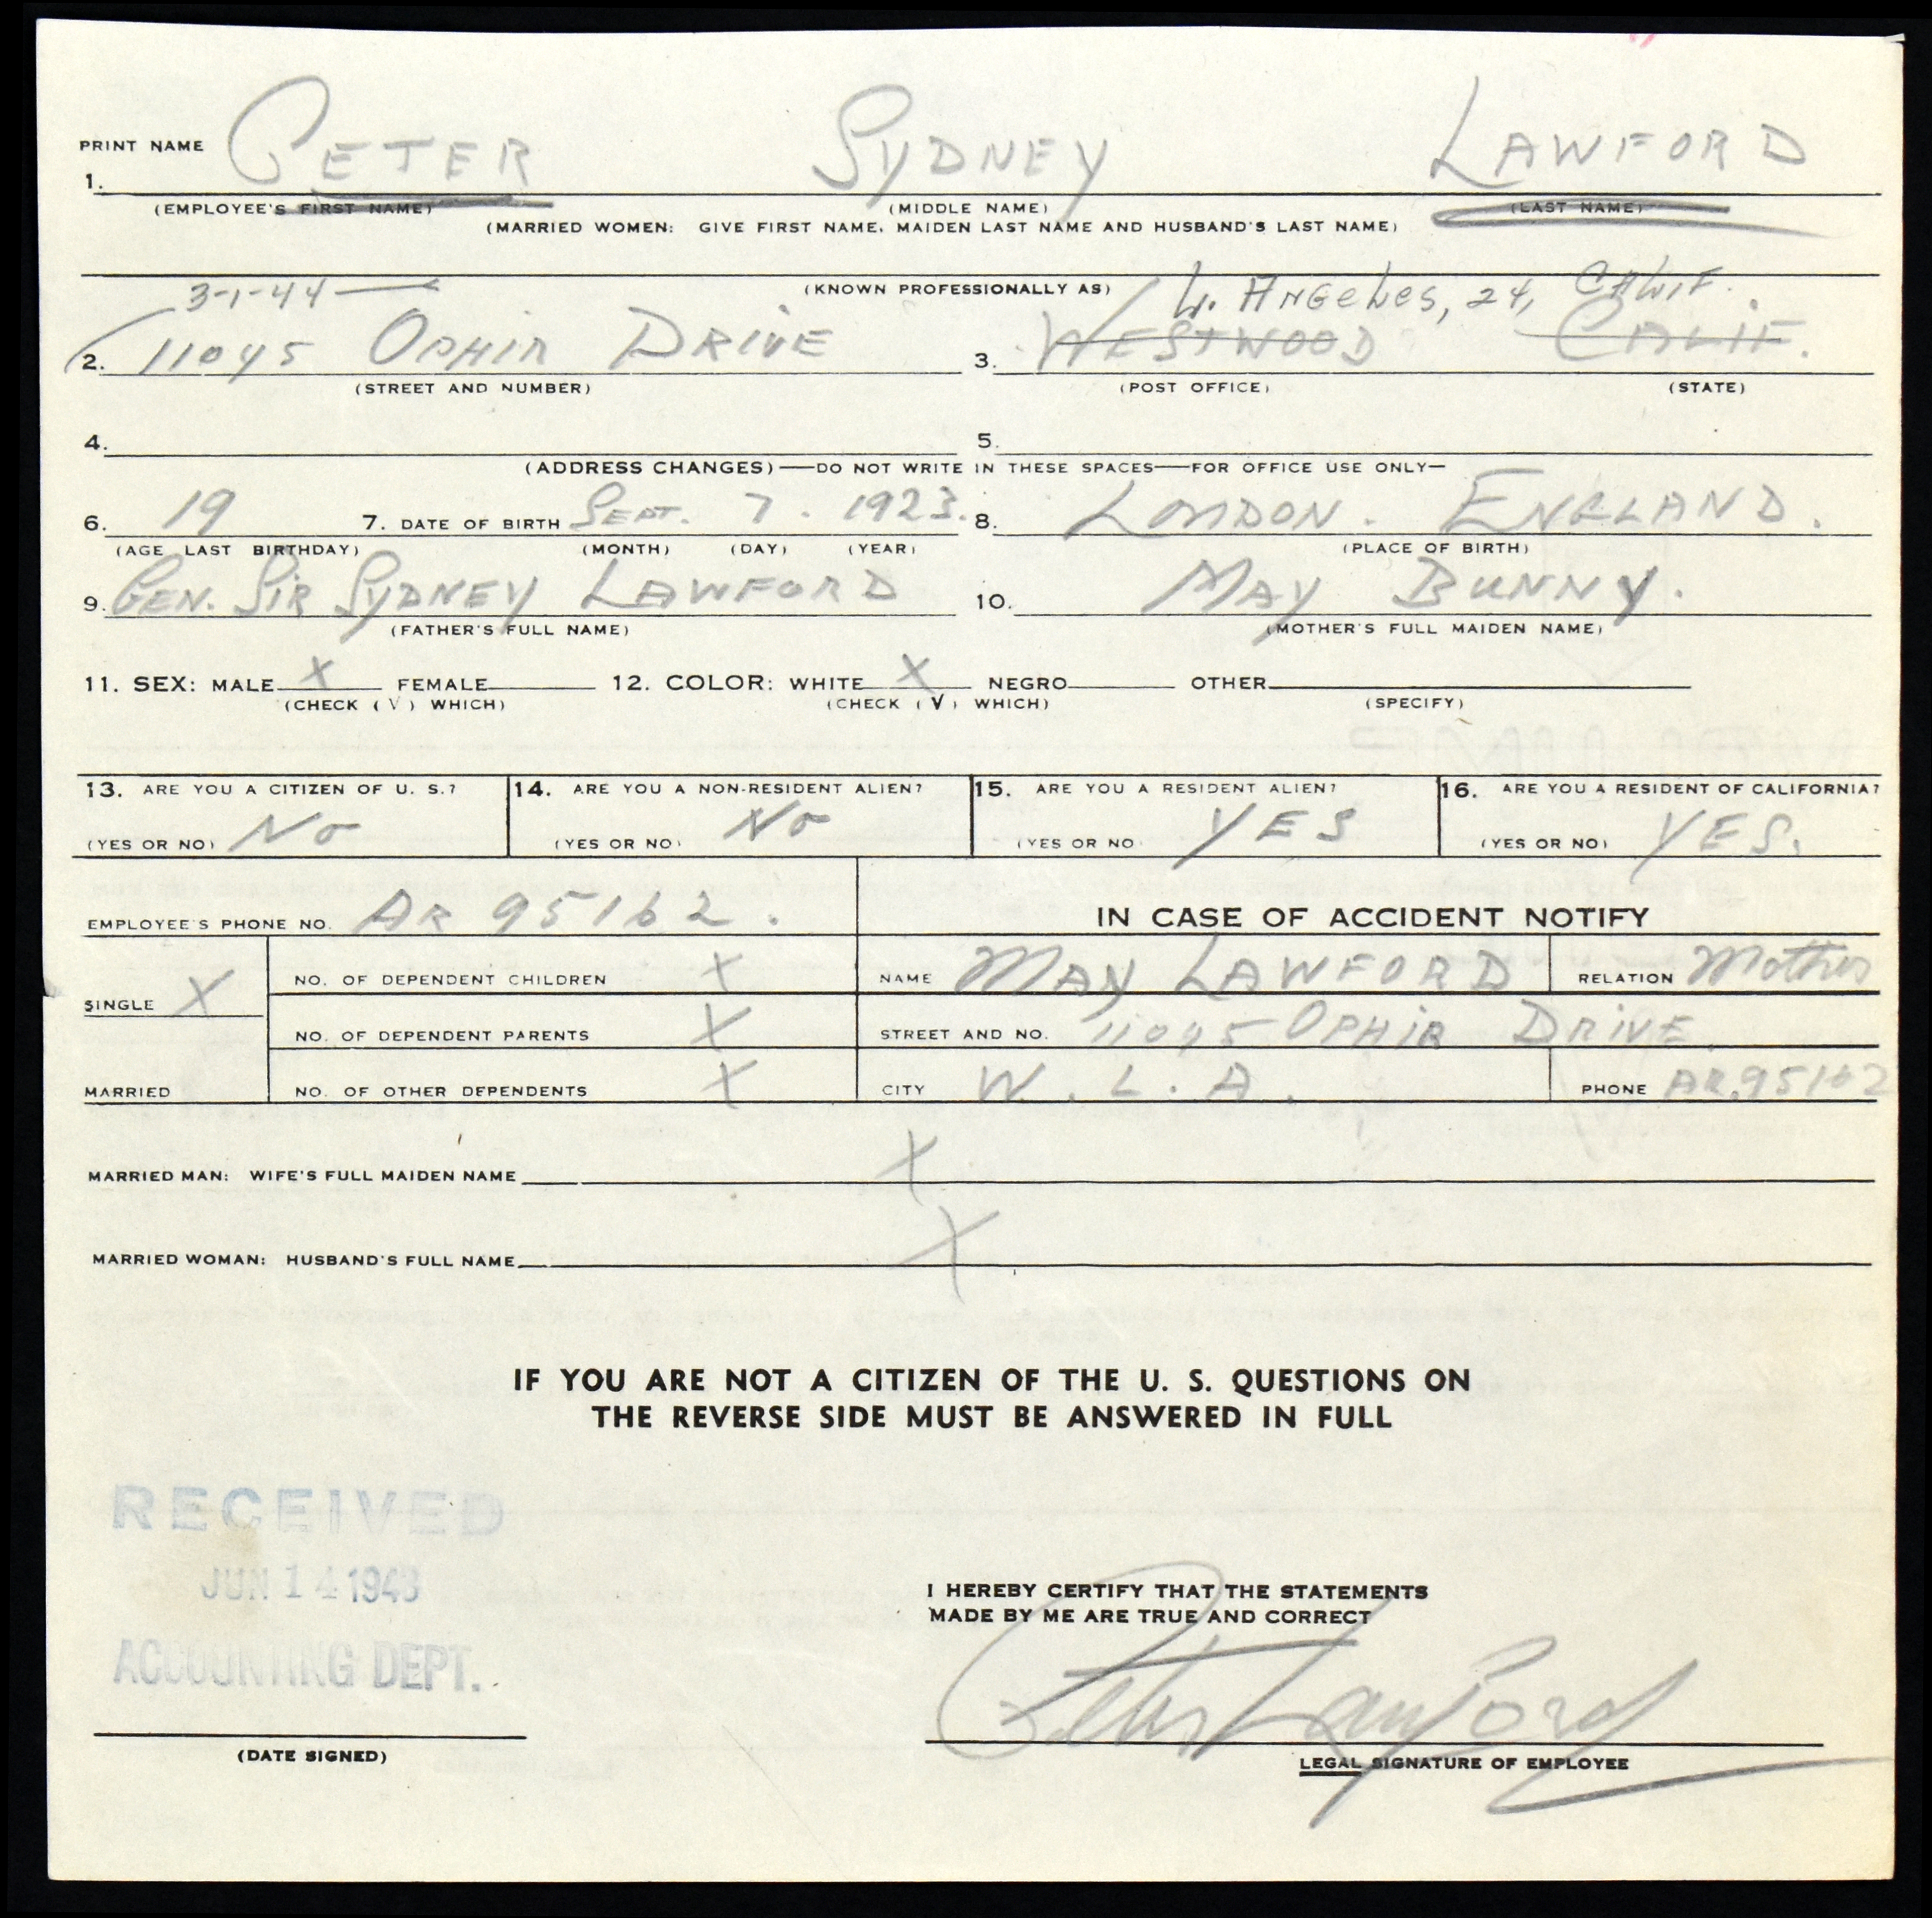 PRINT NAME
1. PETER SYDNEY LAWFORD
(EMPLOYEE'S FIRST NAME) (MIDDLE NAME) (LAST NAME)
(MARRIED WOMEN: GIVE FIRST NAME, MAIDEN LAST NAME AND HUSBAND'S LAST NAME)
(KNOWN PROFESSIONALLY AS)
3-1-44 L. ANGELES, 24, CALIF.
2. 11045 OPHIR DRIVE 3. WESTWOOD CALIF.
(STREET AND NUMBER) (POST OFFICE) (STATE)
4. 5.
(ADDRESS CHANGES)—DO NOT WRITE IN THESE SPACES—FOR OFFICE USE ONLY—
6. 19 7. DATE OF BIRTH SEPT. 7. 1923. 8. LONDON. ENGLAND.
(AGE LAST BIRTHDAY) (MONTH) (DAY) (YEAR) (PLACE OF BIRTH)
9. GEN. SIR SYDNEY LAWFORD 10. MAY BUNNY.
(FATHER'S FULL NAME) (MOTHER'S FULL MAIDEN NAME)
11. SEX: MALE X FEMALE 12. COLOR: WHITE X NEGRO OTHER
(CHECK (√) WHICH) (CHECK (√) WHICH) (SPECIFY)
13. ARE YOU A CITIZEN OF U. S.? 14. ARE YOU A NON-RESIDENT ALIEN? 15. ARE YOU A RESIDENT ALIEN? 16. ARE YOU A RESIDENT OF CALIFORNIA?
(YES OR NO) No (YES OR NO) No (YES OR NO YES (YES OR NO) YES.
EMPLOYEE'S PHONE NO. AR 95162. IN CASE OF ACCIDENT NOTIFY
NO. OF DEPENDENT CHILDREN X NAME MAY LAWFORD RELATION Mother
SINGLE X
NO. OF DEPENDENT PARENTS X STREET AND NO. 11045 OPHIR DRIVE
MARRIED NO. OF OTHER DEPENDENTS X CITY W. L. A. PHONE AR.95162
MARRIED MAN: WIFE'S FULL MAIDEN NAME X
MARRIED WOMAN: HUSBAND'S FULL NAME X
IF YOU ARE NOT A CITIZEN OF THE U. S. QUESTIONS ON
THE REVERSE SIDE MUST BE ANSWERED IN FULL
RECEIVED
JUN 14 1943
ACCOUNTING DEPT.
I HEREBY CERTIFY THAT THE STATEMENTS
MADE BY ME ARE TRUE AND CORRECT
Peter Lawford
(DATE SIGNED) LEGAL SIGNATURE OF EMPLOYEE